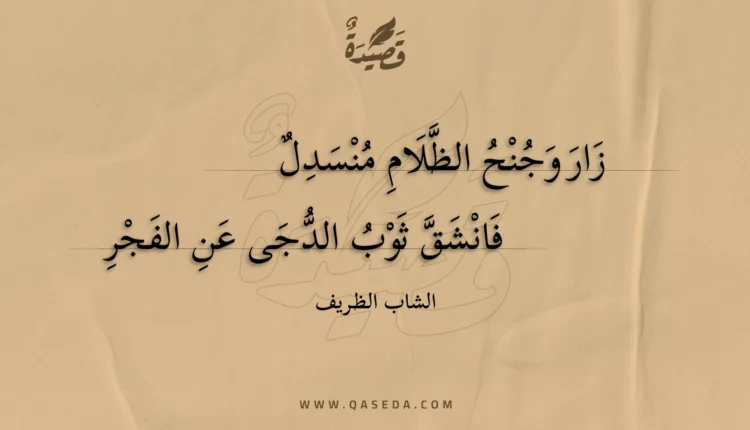 قَصِيْدَةٌ
زَارَ وَجُنْحُ الظَّلَامِ مُنْسَدِلٌ
فَانْشَقَّ ثَوْبُ الدُّجَى عَنِ الفَجْرِ
الشاب الظريف
WWW.QASEDA.COM